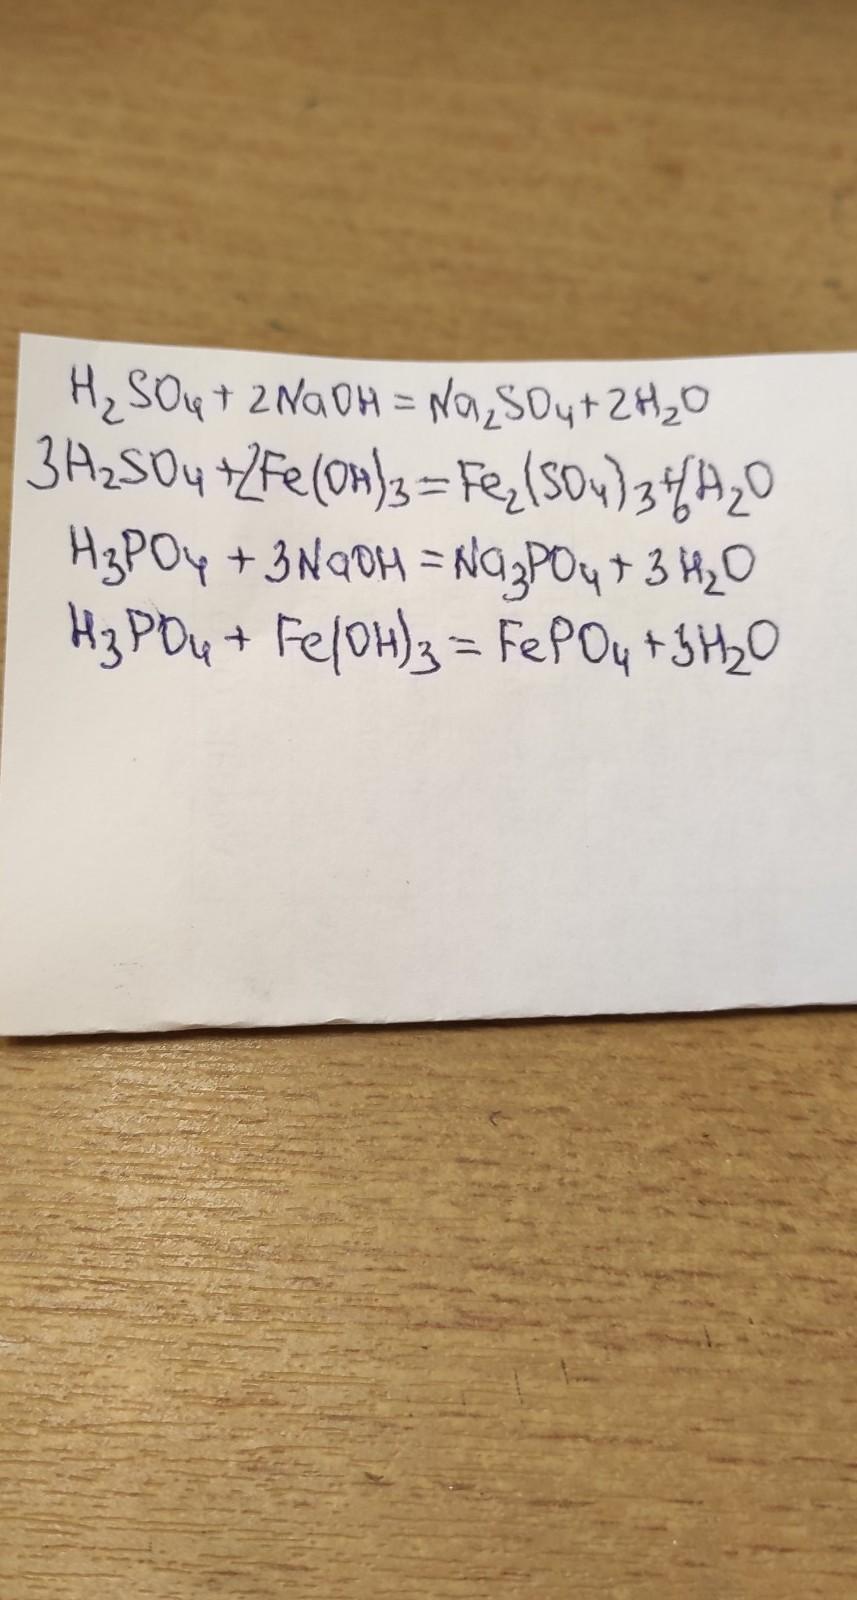 H₂SO₄ + 2NaOH = Na₂SO₄ + 2H₂O
3H₂SO₄ + 2Fe(OH)₃ = Fe₂(SO₄)₃ + 6H₂O
H₃PO₄ + 3NaOH = Na₃PO₄ + 3H₂O
H₃PO₄ + Fe(OH)₃ = FePO₄ + 3H₂O